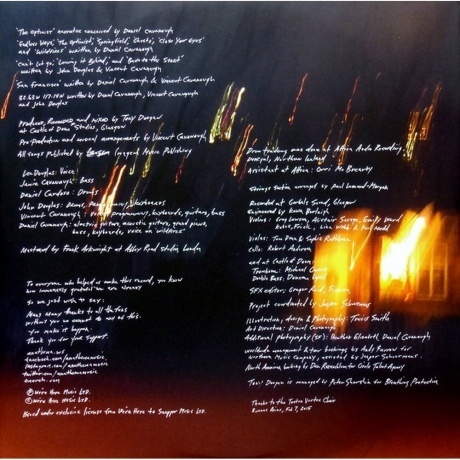 'The Optimist' narrative conceived by Daniel Cavanagh
'Endless Ways', 'The Optimist', 'Springfield', 'Ghosts', 'Close Your Eyes'
and 'Wildfires' written by Daniel Cavanagh
'Can't Let Go', 'Leaving it Behind', and 'Back to the Start'
written by John Douglas & Vincent Cavanagh
San Francisco written by Daniel Cavanagh & Vincent Cavanagh
32.63N 117.14W written by Daniel Cavanagh, Vincent Cavanagh
and John Douglas
Produced, Recorded and mixed by Tony Doogan
at Castle of Doom Studios, Glasgow
Pre-production and several arrangements by Vincent Cavanagh
All songs Published by Imagem Music Publishing
Lee Douglas: Voice
Jamie Cavanagh: Bass
Daniel Cardoso: Drums
John Douglas: Drums, Programming, keyboards
Vincent Cavanagh: Voice, Programming, keyboards, guitars, bass
Daniel Cavanagh: electric guitar, acoustic guitar, grand piano,
bass, keyboards, voice on 'wildfires'
Mastered by Frank Arkwright at Abbey Road studios, London
To everyone who helped us make this record, you know
our immense gratitude you already
So we just wish to say:
Many many thanks to all the fans
without you we cannot do any of this.
You make it happen.
Thank you for your support.
anathema.ws
facebook.com/anathemamusic
instagram.com/anathemamusic
twitter.com/anathemamusic
anarch.com
Ⓟ We're Here Music LTD.
© We're Here Music LTD.
Mixed under exclusive license from We're Here to Snapper Music LTD.
Drum tracking was done at Attica Audio Recording,
Donegal, Northern Ireland
Assistant at Attica: Orri McBrearty
Strings section arranged by Paul Leonard-Morgan
Recorded at Gorbals Sound, Glasgow
Engineered by Kevin Burleigh
Violins: Greg Lawson, Alistair Savage, Emily Ward
Fiona, Lisa Webb & Paul Medd
Violas: Tom Dunn & Sophie Rathbone
Cello: Robert Anderson
and at Castle of Doom
Trombone: Michael Owers
Double Bass: Daniem
SFX editor: Gregor Reid, Figment
Project coordinated by Jasper Schuurmans
Illustration, design & Photography: Travis Smith
Art Direction: Daniel Cavanagh
Additional Photography (SF): Heather Elizabeth, Daniel Cavanagh
worldwide management & tour booking by Andy Farrow for
Northern Music Company, assisted by Jasper Schuurmans
North America booking by Dan Rozenblum for Circle Talent Agency
Tony Doogan is managed by Peter Shershin for Breathing Protection
Thanks to the Twelve Vortex Choir
Buenos Aires, Feb 7, 2015